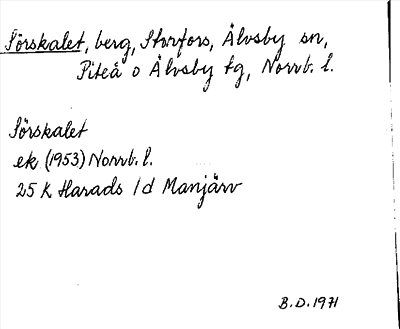 Sörskalet, berg, Storfors, Älvsby sn,
Piteå o Älvsby tg, Norrb. l.
Sörskalet
ek (1953) Norrb. l.
25 K Harads 1d Manjärv
B.D. 1971